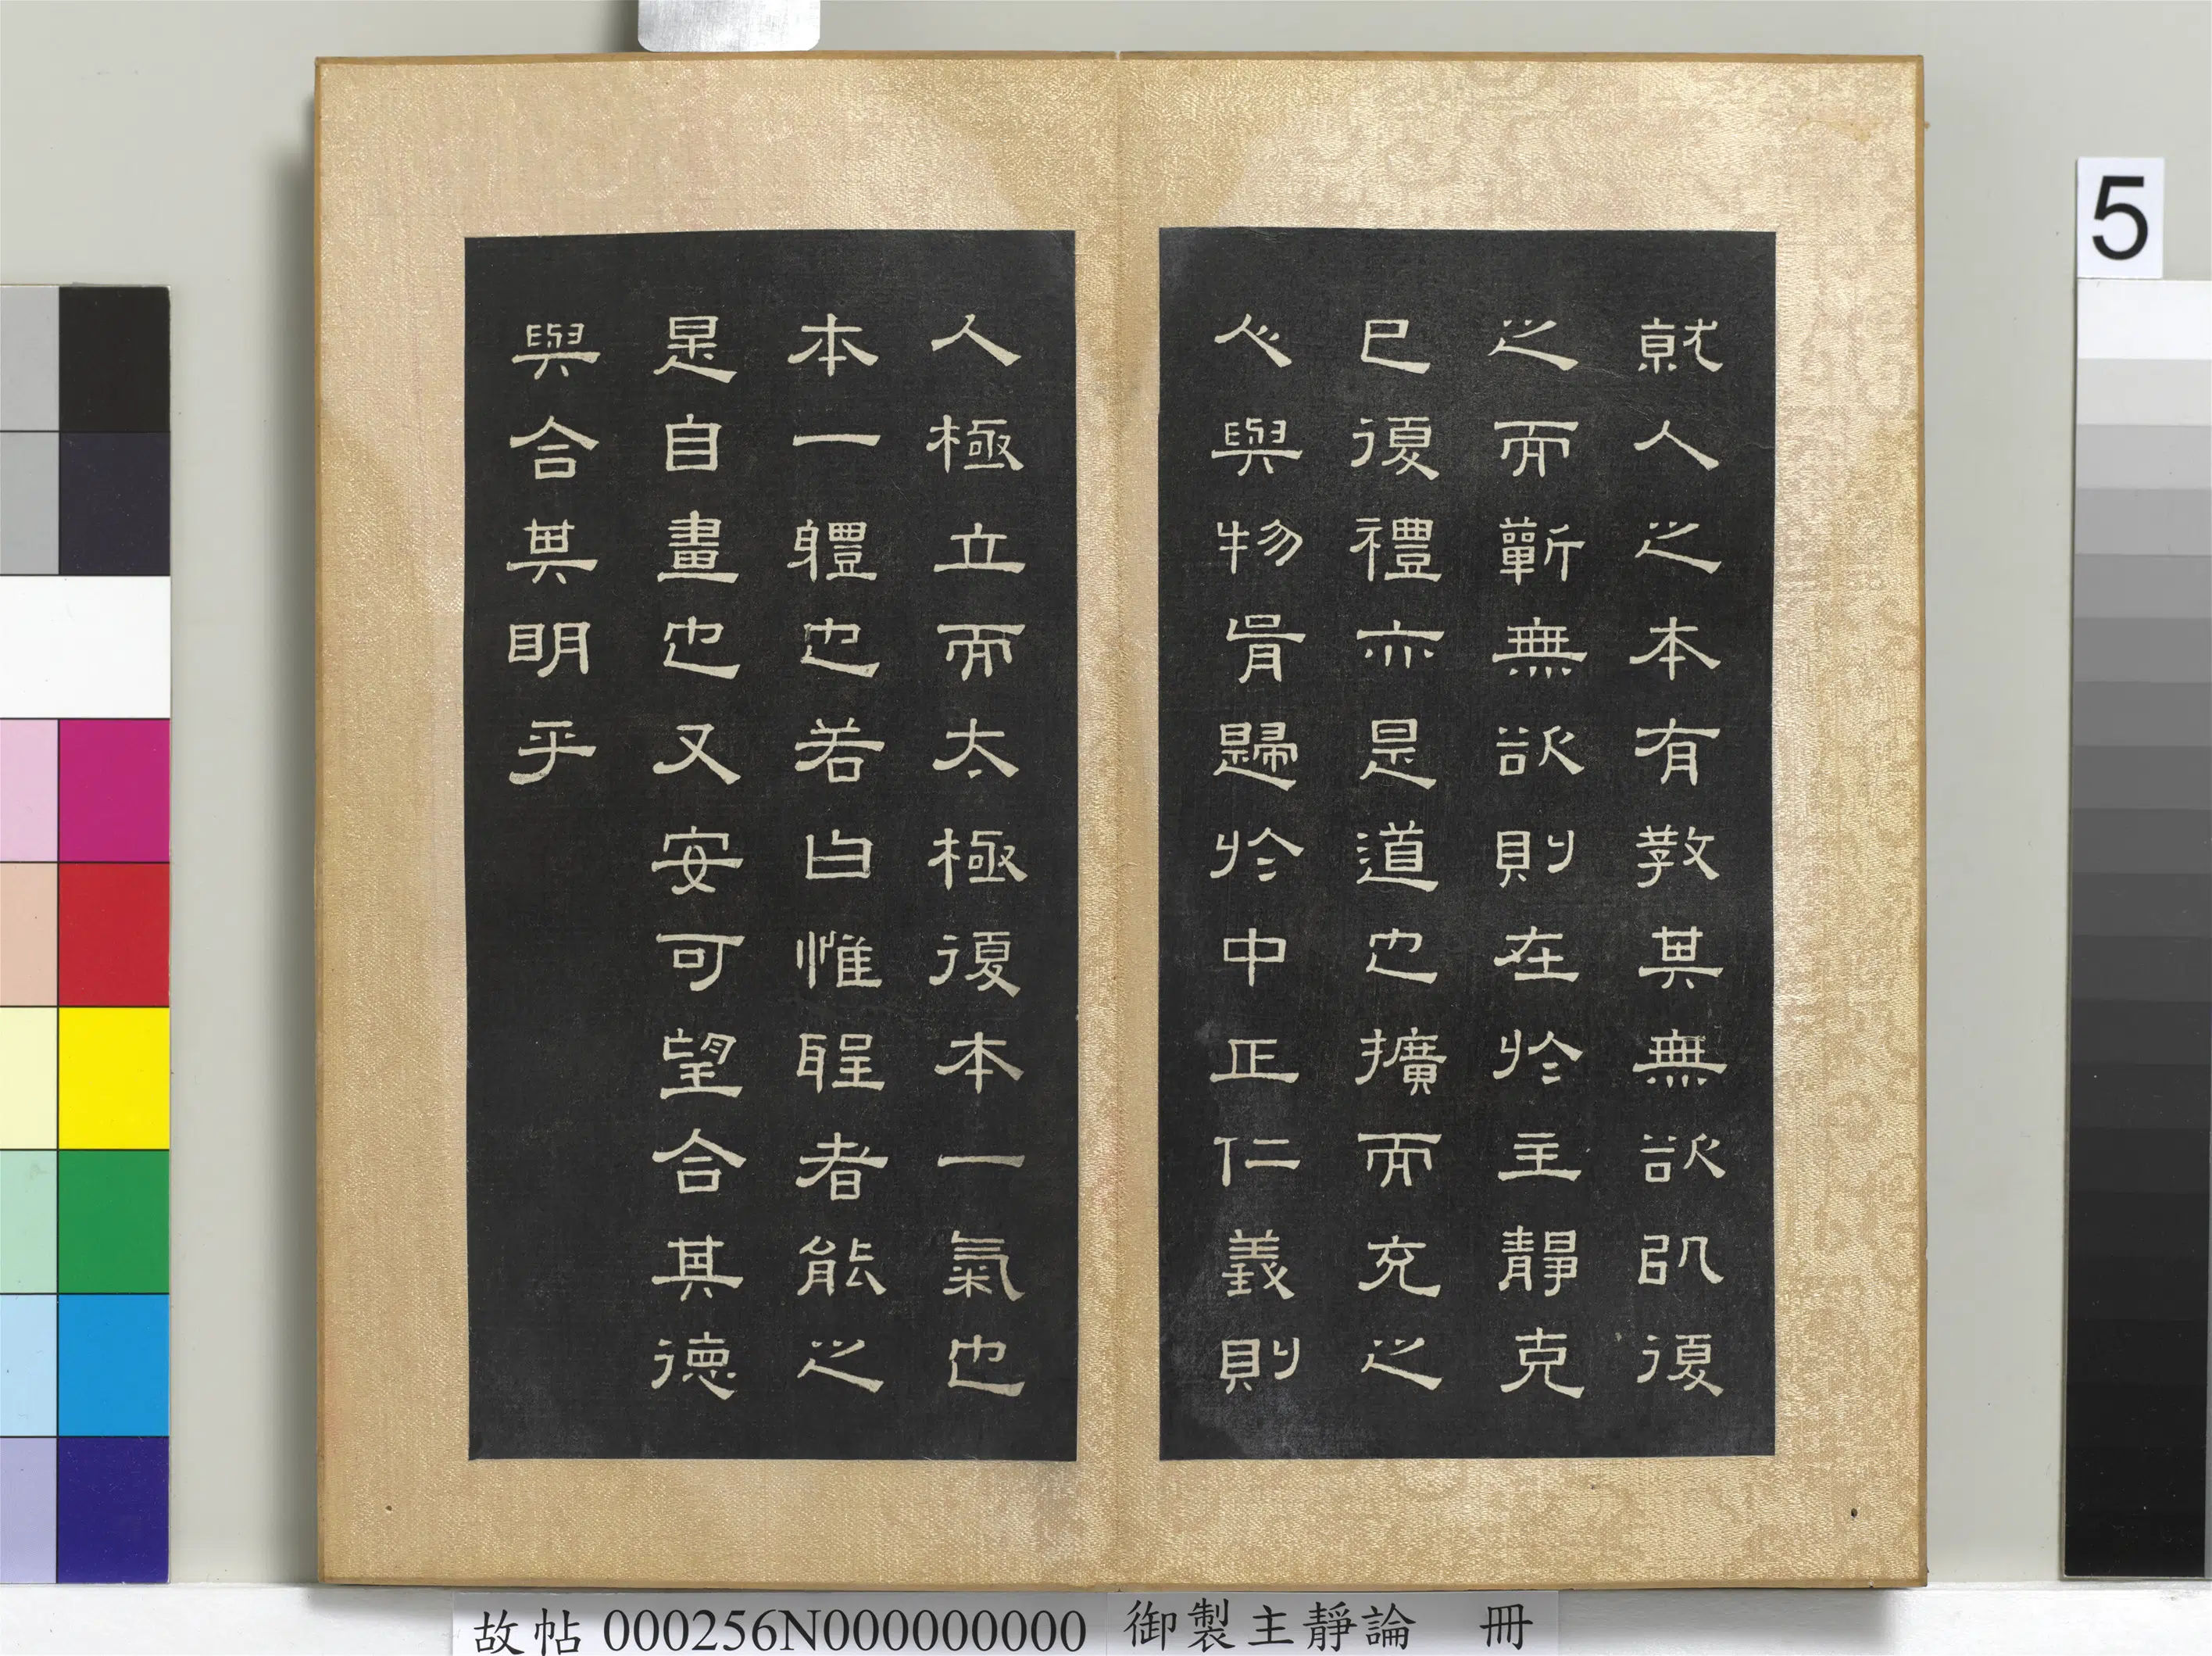 就人之本有教其無欲以復
之而蘄無欲則在於主靜克
己復禮亦是道也擴而充之
人〻與物胥歸於中正仁義則
人極立而太極復本一氣也
本一體也若曰惟聖者能之
是自畫也又安可望合其德
與合其明乎
5
故帖 000256N000000000 御製主靜論 冊